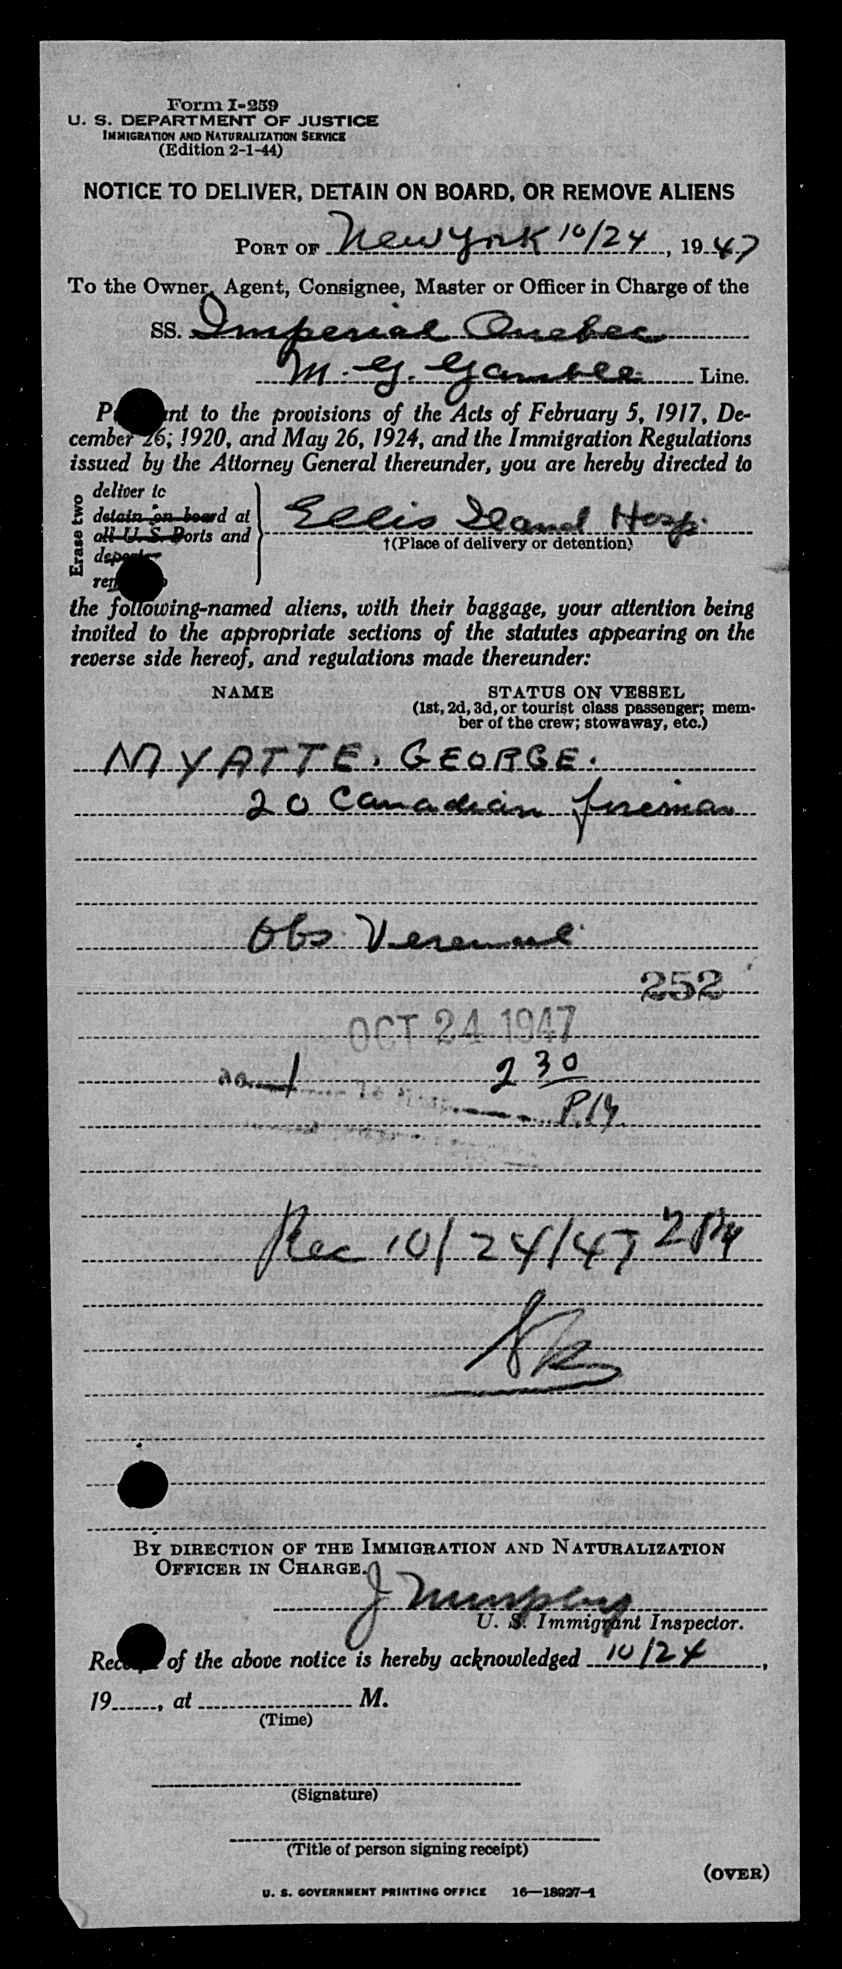 Form I-259
U. S. DEPARTMENT OF JUSTICE
IMMIGRATION AND NATURALIZATION SERVICE
(Edition 2-1-44)
NOTICE TO DELIVER, DETAIN ON BOARD, OR REMOVE ALIENS
PORT OF New York 10/24, 1947
To the Owner, Agent, Consignee, Master or Officer in Charge of the
SS. Imperial Quebec
M. G. Gamble Line.
P nt to the provisions of the Acts of February 5, 1917, De-
cember 26, 1920, and May 26, 1924, and the Immigration Regulations
issued by the Attorney General thereunder, you are hereby directed to
Erase two
deliver to
detain on board at
all U. S. Ports and
deport
rem o
Ellis Island Hosp.
†(Place of delivery or detention)
the following-named aliens, with their baggage, your attention being
invited to the appropriate sections of the statutes appearing on the
reverse side hereof, and regulations made thereunder:
NAME STATUS ON VESSEL
(1st, 2d, 3d, or tourist class passenger; mem-
ber of the crew; stowaway, etc.)
MYATTE, GEORGE.
20 Canadian fireman
Obs Venereal
252
OCT 24 1947
1 2 30
P.M.
Rec 10/24/47 2 PM
BY DIRECTION OF THE IMMIGRATION AND NATURALIZATION
OFFICER IN CHARGE.
J Murphy
U. S. Immigrant Inspector.
Rec of the above notice is hereby acknowledged 10/24,
19 , at M.
(Time)
(Signature)
(Title of person signing receipt)
(OVER)
U. S. GOVERNMENT PRINTING OFFICE 16—18927-1